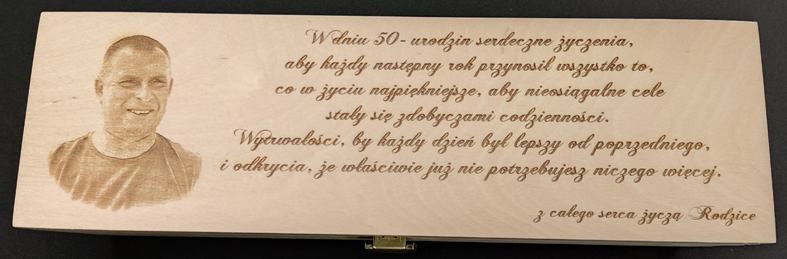 W dniu 50 - urodzin serdeczne życzenia,
aby każdy następny rok przynosił wszystko to,
co w życiu najpiękniejsze, aby nieosiągalne cele
stały się zdobyczami codzienności.
Wytrwałości, by każdy dzień był lepszy od poprzedniego,
i odkrycia, że właściwie już nie potrzebujesz niczego więcej.
z całego serca życzą Rodzice